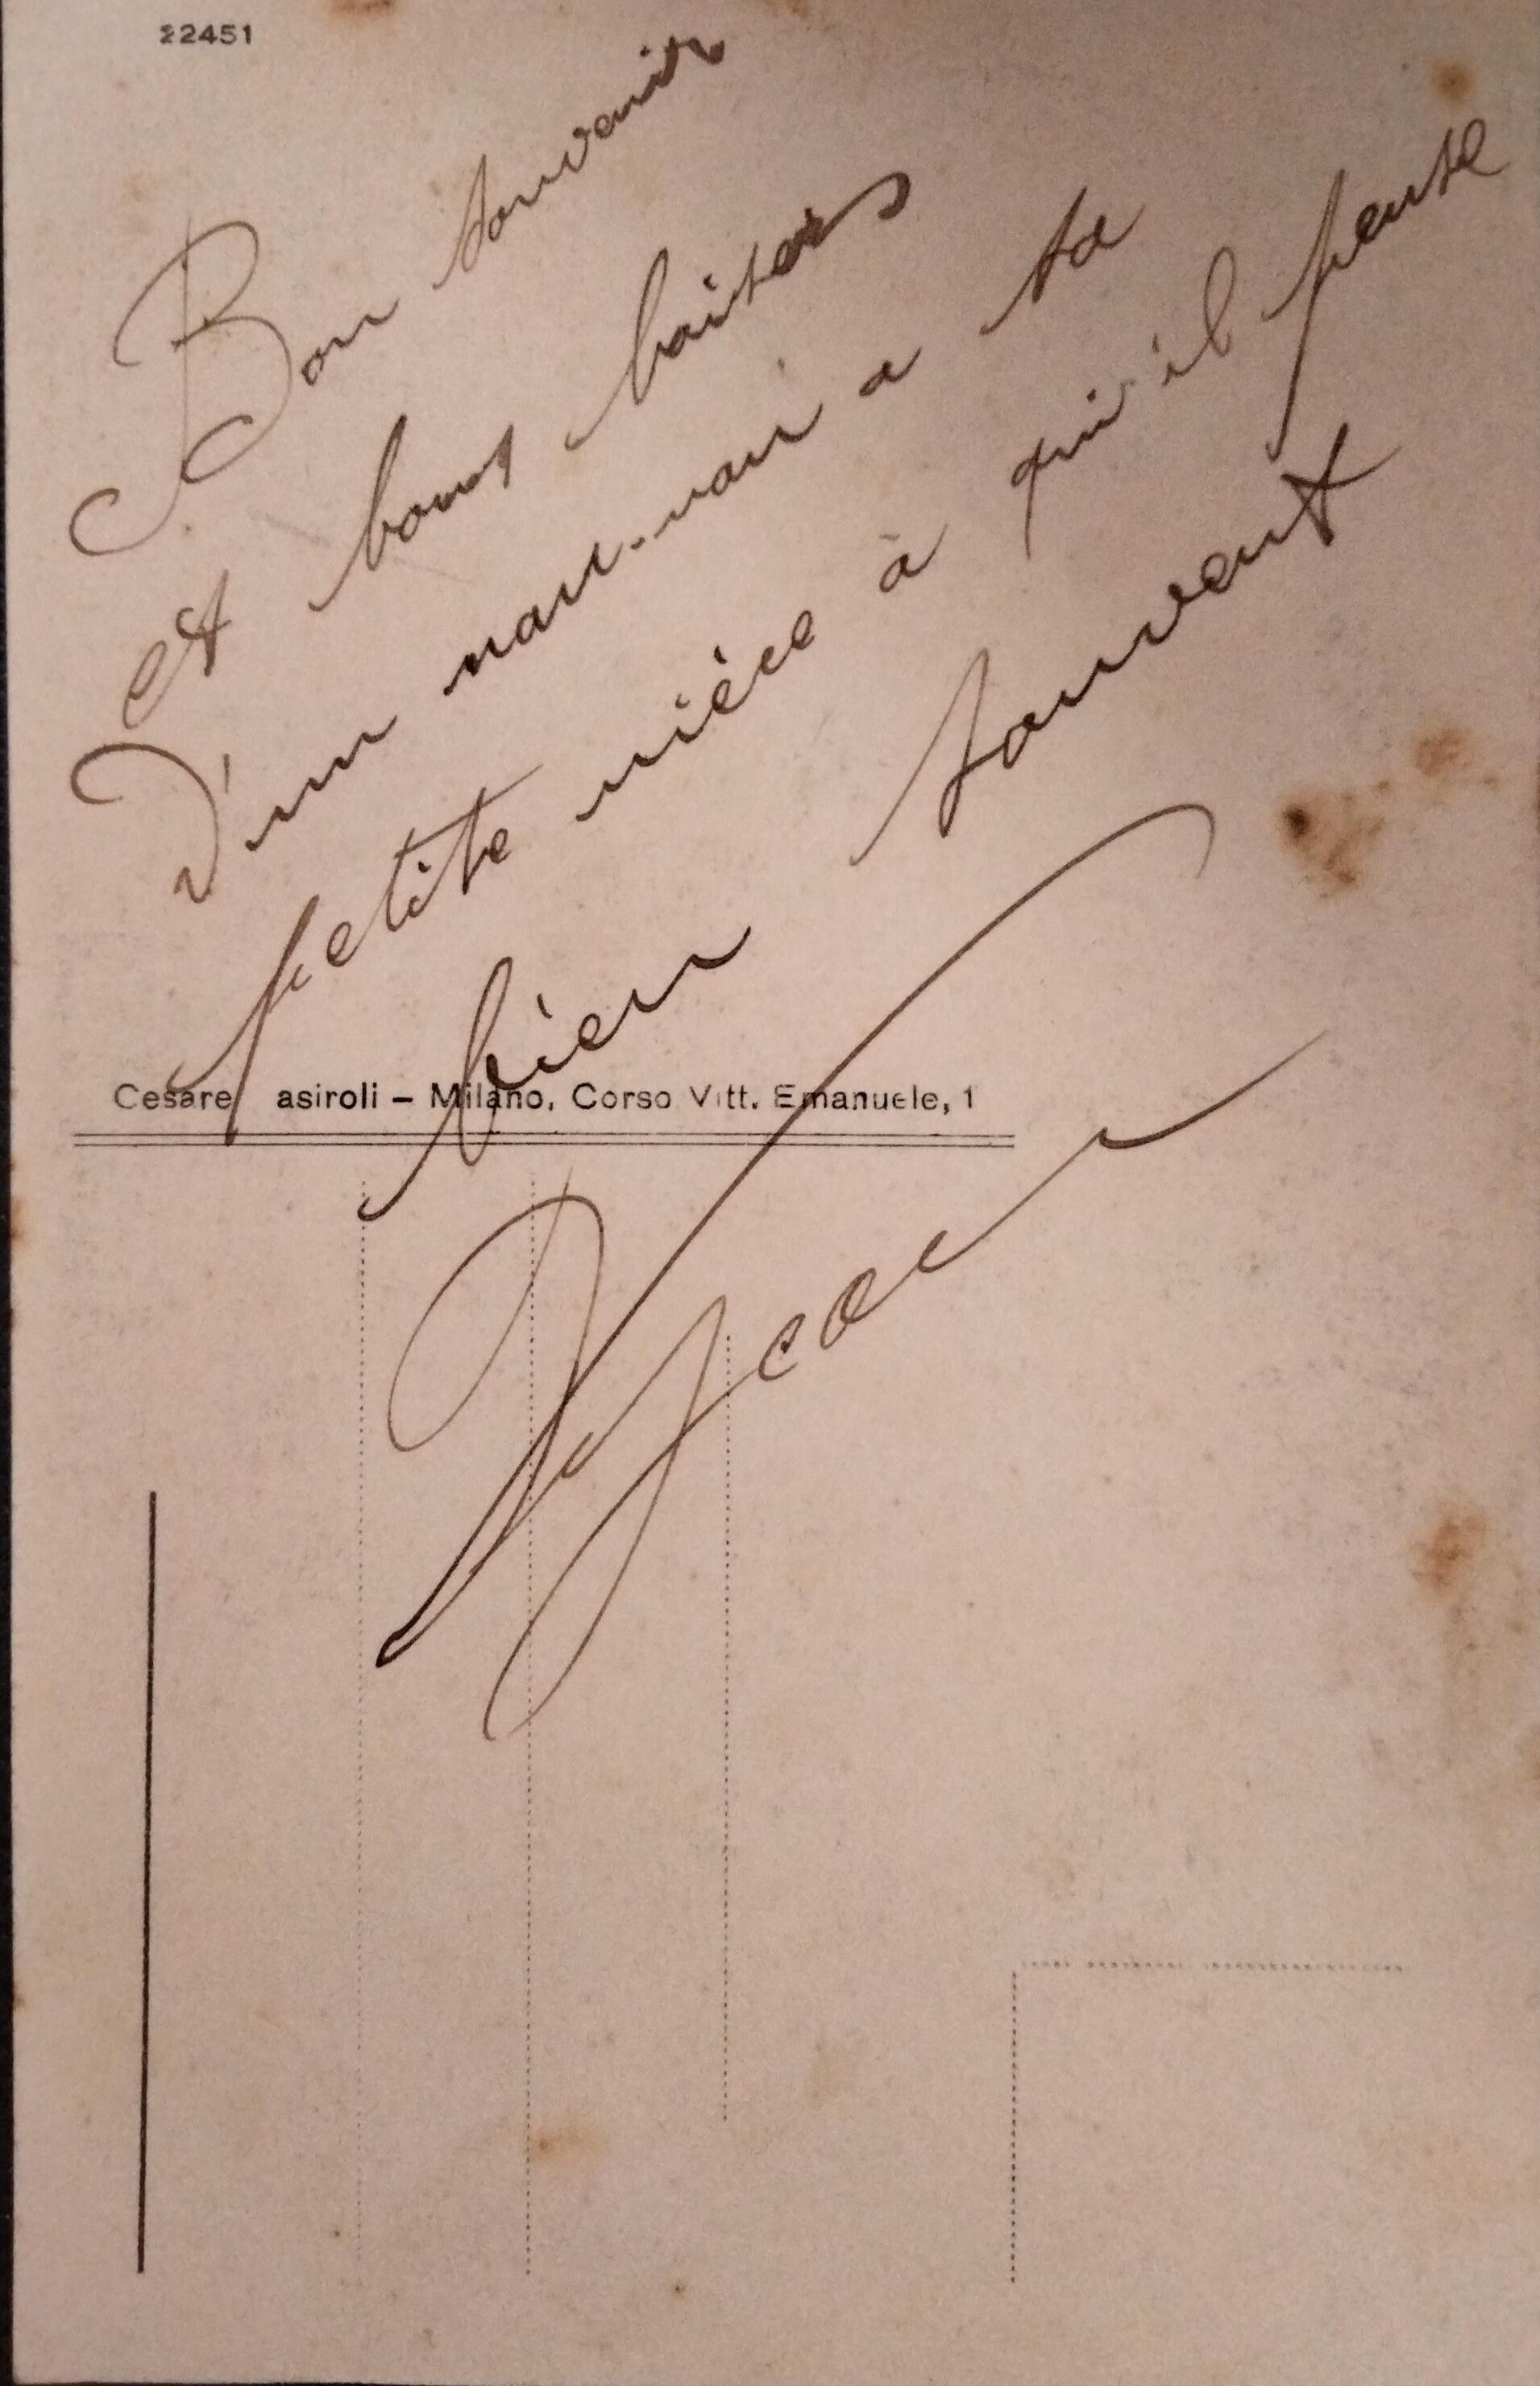 22451
Bon souvenir
et bons baisers
d'un non-non a sa
petite nièce à qui il pense
bien souvent
Cesare asiroli – Milano, Corso Vitt. Emanuele, 1